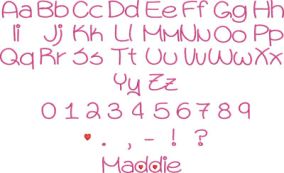 Aa Bb Cc Dd Ee Ff Gg Hh
Ii Jj Kk Ll Mm Nn Oo Pp
Qq Rr Ss Tt Uu Vv Ww Xx
Yy Zz
0 1 2 3 4 5 6 7 8 9
. , - ! ?
Maddie